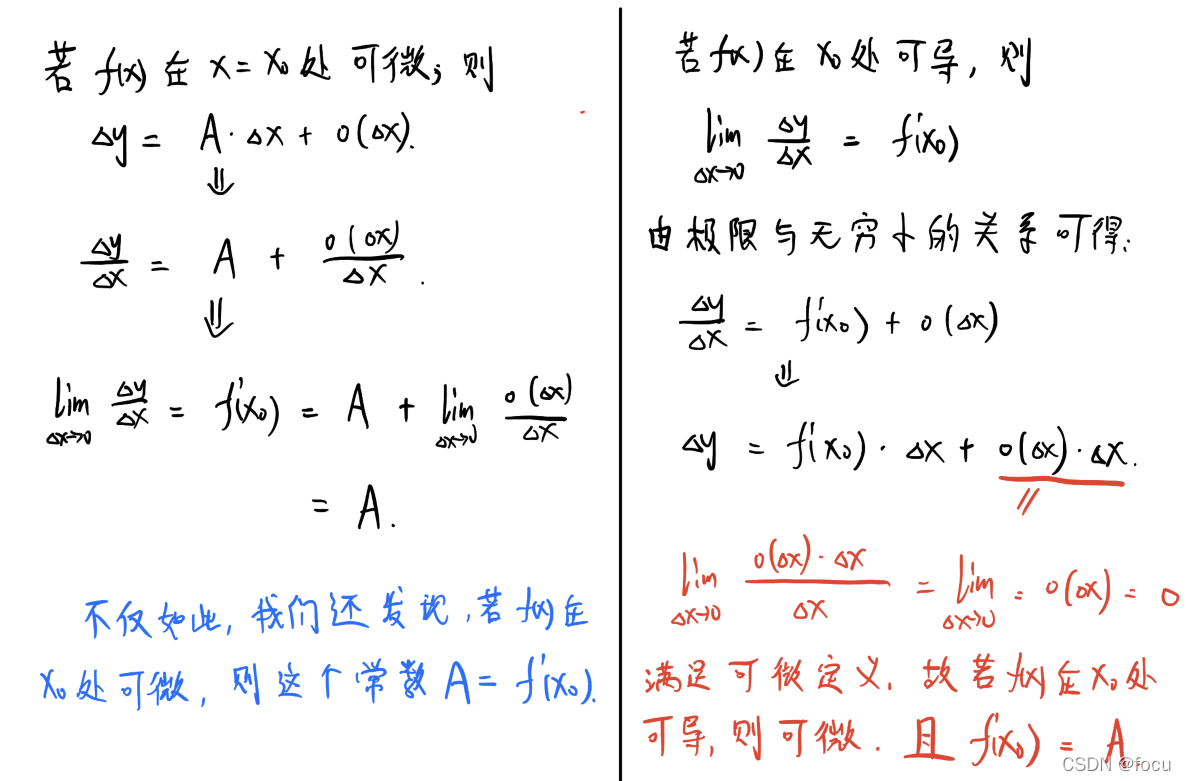 若 f(x) 在 x = x₀ 处 可微, 则
Δy = A · Δx + o(Δx).
⇓
Δy/Δx = A + o(Δx)/Δx .
⇓
lim Δx→0 Δy/Δx = f'(x₀) = A + lim Δx→0 o(Δx)/Δx
= A.
不仅如此, 我们还发现, 若 f(x) 在
x₀ 处可微, 则这个常数 A = f'(x₀).
若 f(x) 在 x₀ 处 可导, 则
lim Δx→0 Δy/Δx = f'(x₀)
由极限与无穷小的关系可得:
Δy/Δx = f'(x₀) + o(Δx)
⇓
Δy = f'(x₀) · Δx + o(Δx) · Δx.
lim Δx→0 o(Δx) · Δx/Δx = lim Δx→0 = o(Δx) = 0
满足可微定义, 故若 f(x) 在 x₀ 处
可导, 则可微. 且 f'(x₀) = A
CSDN @focu